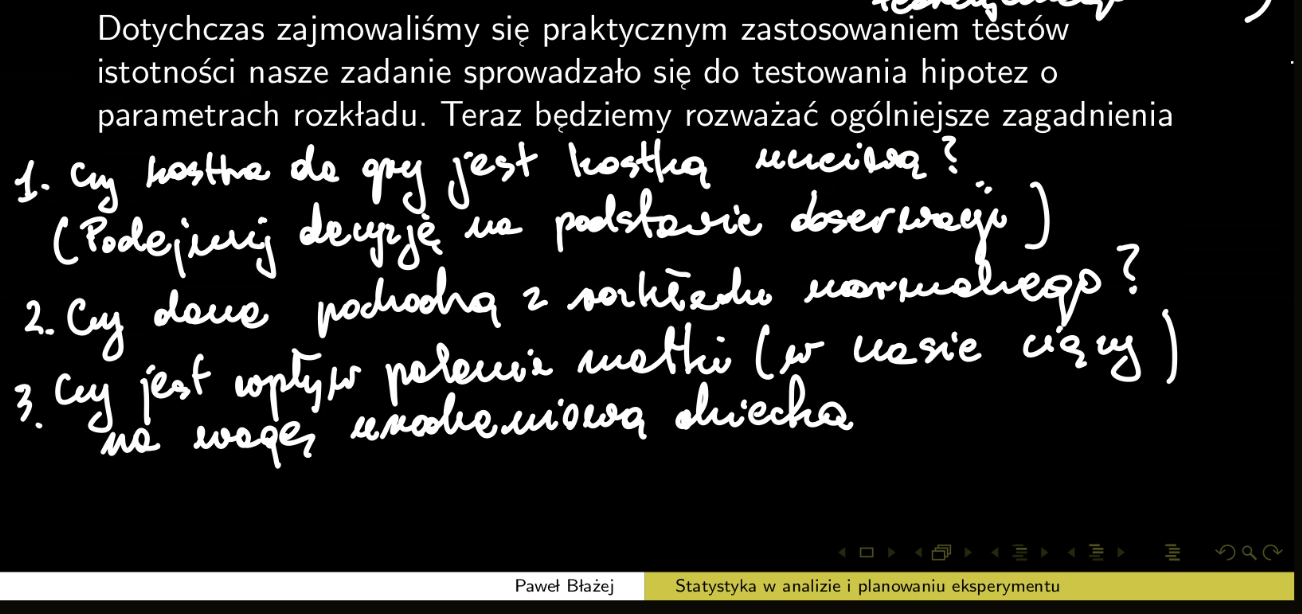 Dotychczas zajmowaliśmy się praktycznym zastosowaniem testów
istotności nasze zadanie sprowadzało się do testowania hipotez o
parametrach rozkładu. Teraz będziemy rozważać ogólniejsze zagadnienia
1. Czy kostka do gry jest kostką uczciwą?
(Podejmij decyzję na podstawie obserwacji)
2. Czy dane pochodzą z rozkładu normalnego?
3. Czy jest wpływ palenia matki (w czasie ciąży)
na wagę urodzeniową dziecka
Paweł Błażej
Statystyka w analizie i planowaniu eksperymentu